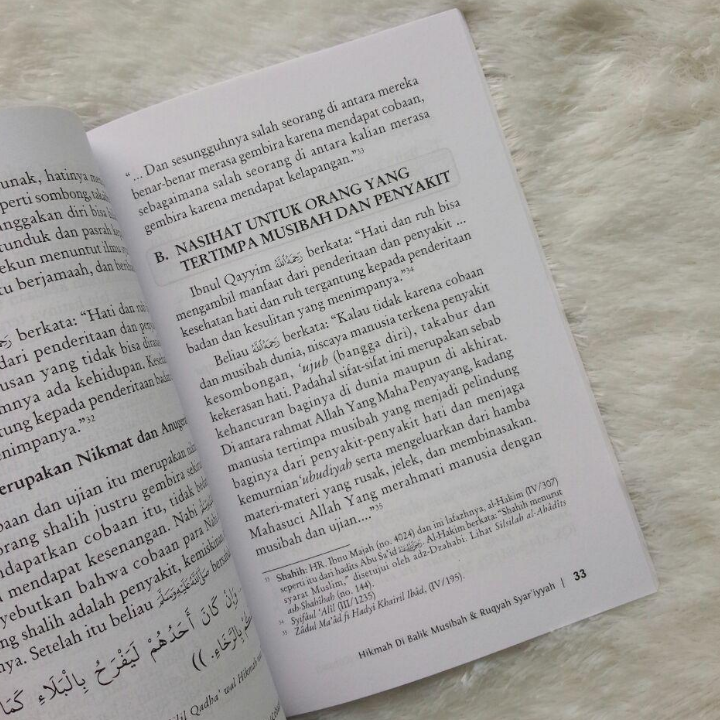 unak, hatinya
perti sombong,
nggakan diri bisa
tunduk dan pasrah
ekun menuntut ilmu
tu berjamaah, dan
berkata: "Hati dan ruh
dari penderitaan dan
usan yang tidak bisa
mnya ada kehidupan.
tung kepada penderitaan
nimpanya."32
erupakan Nikmat dan
baan dan ujian itu merupakan
orang shalih justru gembira
ndapatkan cobaan itu, tidak
u mendapat kesenangan. Nabi
yebutkan bahwa cobaan para
ng shalih adalah penyakit, kemiskinan
nya. Setelah itu beliau ﷺ
وَإِنْ كَانَ أَحَدُهُمْ لَيَفْرَحُ بِالْبَلَاءِ كَمَا
بِالرَّخَاءِ. ))
Qadha' wal
"... Dan sesungguhnya salah seorang di antara mereka
benar-benar merasa gembira karena mendapat cobaan,
sebagaimana salah seorang di antara kalian merasa
gembira karena mendapat kelapangan."33
B. NASIHAT UNTUK ORANG YANG
TERTIMPA MUSIBAH DAN PENYAKIT
Ibnul Qayyim رحمه الله berkata: "Hati dan ruh bisa
mengambil manfaat dari penderitaan dan penyakit ...
kesehatan hati dan ruh tergantung kepada penderitaan
badan dan kesulitan yang menimpanya."34
Beliau رحمه الله berkata: "Kalau tidak karena cobaan
dan musibah dunia, niscaya manusia terkena penyakit
kesombongan, 'ujub (bangga diri), takabur dan
kekerasan hati. Padahal sifat-sifat ini merupakan sebab
kehancuran baginya di dunia maupun di akhirat.
Di antara rahmat Allah Yang Maha Penyayang, kadang
manusia tertimpa musibah yang menjadi pelindung
baginya dari penyakit-penyakit hati dan menjaga
kemurnian 'ubudiyah serta mengeluarkan dari hamba
materi-materi yang rusak, jelek, dan membinasakan.
Mahasuci Allah Yang merahmati manusia dengan
musibah dan ujian...."35
33 Shahih: HR. Ibnu Majah (no. 4024) dan ini lafazhnya, al-Hakim (IV/307)
seperti itu dari hadits Abu Sa'id رضي الله عنه. Al-Hakim berkata: "Shahih menurut
syarat Muslim," disetujui oleh adz-Dzahabi. Lihat Silsilah al-Ahâdîts
ash-Shahîhah (no. 144).
34 Syifâul 'Alîl (III/1235)
35 Zâdul Ma'âd fî Hadyi Khairil Ibâd, (IV/195).
Hikmah Di Balik Musibah & Ruqyah Syar'iyyah | 33